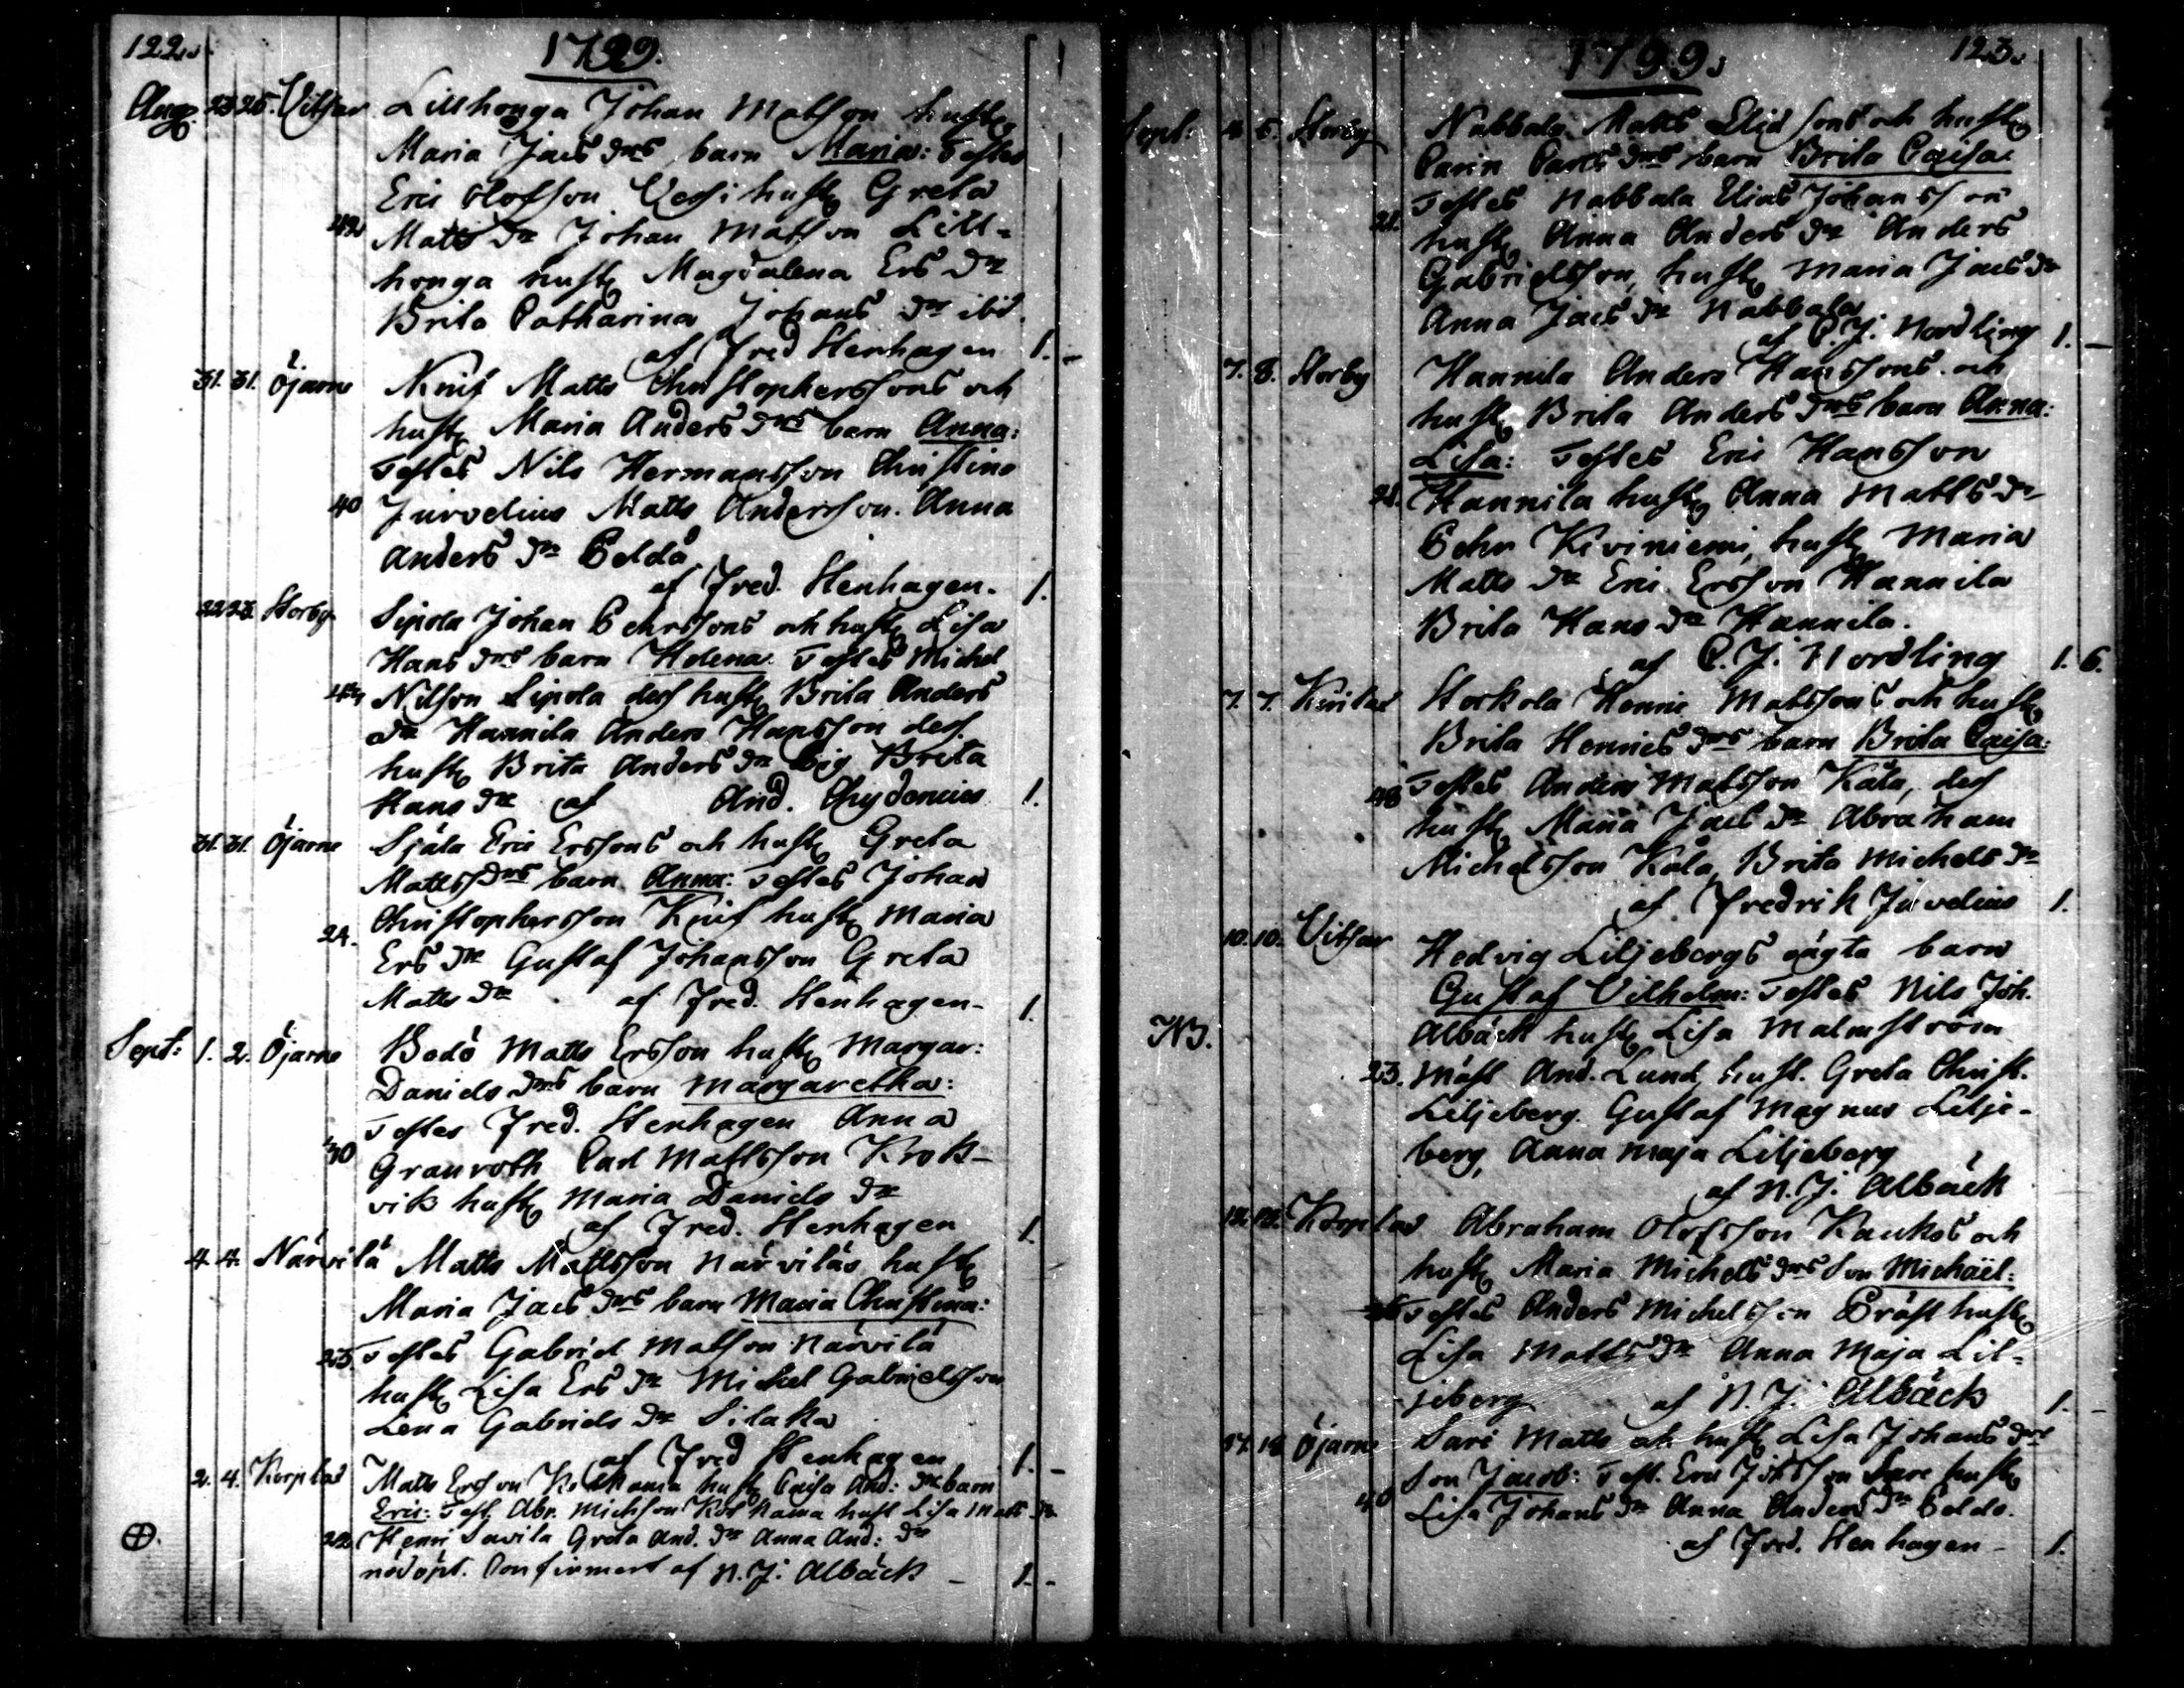 122.
1799.
Aug. 23 25. Vitsar Lillhonga Johan Matsson hust
Maria Jacs Drs barn Maria: Testes
Eric Olofson Vessi hust Greta
Matts Dr Johan Matsson Lill-
honga hust Magdalena Ers Dr
Brita Catharina Johans Dr ibd.
af Fred Stenhagen 1. -
31. 31. Öjarne Knif Matts Christopherssons och
hust Maria Anders Drs barn Anna:
Testes Nils Hermansson Christina
40 Jurvelius Matts Andersson. Anna
Anders Dr Peldo
af Fred. Stenhagen. 1.
22 23. Storby Sipola Johan Pehrssons och hust Lisa
Hans Drs barn Helena. Testes Michel
Nilsson Sipola dess hust Brita Anders
Dr Hannila Anders Hansson dess
hust Brita Anders Dr Pig Brita
Hans Dr af And. Chydenius 1.
31. 31. Öjarne Själa Eric Erssons och hust Greta
Matts Drs barn Anna: Testes Johan
Christophersson Knif hust Maria
24. Ers Dr Gustaf Johansson Greta
Matts Dr af Fred. Stenhagen- 1.
Sept: 1. 2. Öjarne Bodö Matts Ersson hust Margar:
Daniels Drs barn Margaretha:
Testes Fred. Stenhagen Anna
30 Granroth Carl Mattsson Krok-
vik hust Maria Daniels Dr
af Fred. Stenhagen 1.
4. 4. Närvilä Matts Mattsson Närviläs hust
Maria Jacs Drs barn Maria Christina:
23 Testes Gabriel Matsson Närvilä
hust Lisa Ers Dr Mickel Gabrielsson
Lena Gabriels Dr Silaka
af Fred Stenhagen 1. -
2. 4. Korplax Matts Ersson hust Caisa And: Dr barn
Eric: Test. Abr. Michsson hust Lisa Matts Dr
22 Henri Savila Greta And. Dr Anna And: Dr
nöddpt. Confirmert af N. J. Albäck - 1. -
1799.
123.
Sept: 4. 5. Storby Nabbala Matts Elid sons och hust
Carin Carls Drs barn Brita Caisa:
Testes Nabbala Elias Johansson
21. hust Anna Anders Dr Anders
Gabrielsson, hust Maria Jacs Dr
Anna Jacs Dr Nabbala
af C. J. Nordling 1. -
7. 8. Storby Hannila Anders Hanssons och
hust Brita Anders Drs barn Anna:
Lisa: Testes Eric Hansson
Hannila hust Anna Matts Dr
Pehr Kiviniemi, hust Maria
Matts Dr Eric Ersson Hannila
Brita Hans Dr Hannila.
af C. J. Nordling 1. 6.
7. 7. Storkola Henric Matssons och hust
Brita Henrics Drs barn Brita Caisa:
48 Testes Anders Matsson Kåla, dess
hust Maria Jacs Dr Abraham
Michelsson Kåla, Brita Michels Dr
af Fredrik Jurvelius 1.
10. 10. Vitsar Hedvig Liljebergs oägta barn
Gustaf Vilhelm: Testes Nils Joh.
NB. Albäck hust Lisa Malmström
23. Mäst And. Lund, hust. Greta Christ.
Liljeberg. Gustaf Magnus Lilje-
berg, Anna Maja Liljeberg
af N. J. Albäck
Korplax Abraham Olofsson Kaukos och
hust Maria Michels Drs Son Michäel:
Testes Anders Michelsson Präst hust
Lisa Matts Dr Anna Maja Lil-
jeberg af N. J. Albäck 1. -
17. 18. Öjarne Sare Matts och hust Lisa Johans Drs
Son Jacob: Test. Eric Johsson Sare hust
40 Lisa Johans Dr Anna Anders Dr Peldo.
af Fred. Stenhagen - 1.